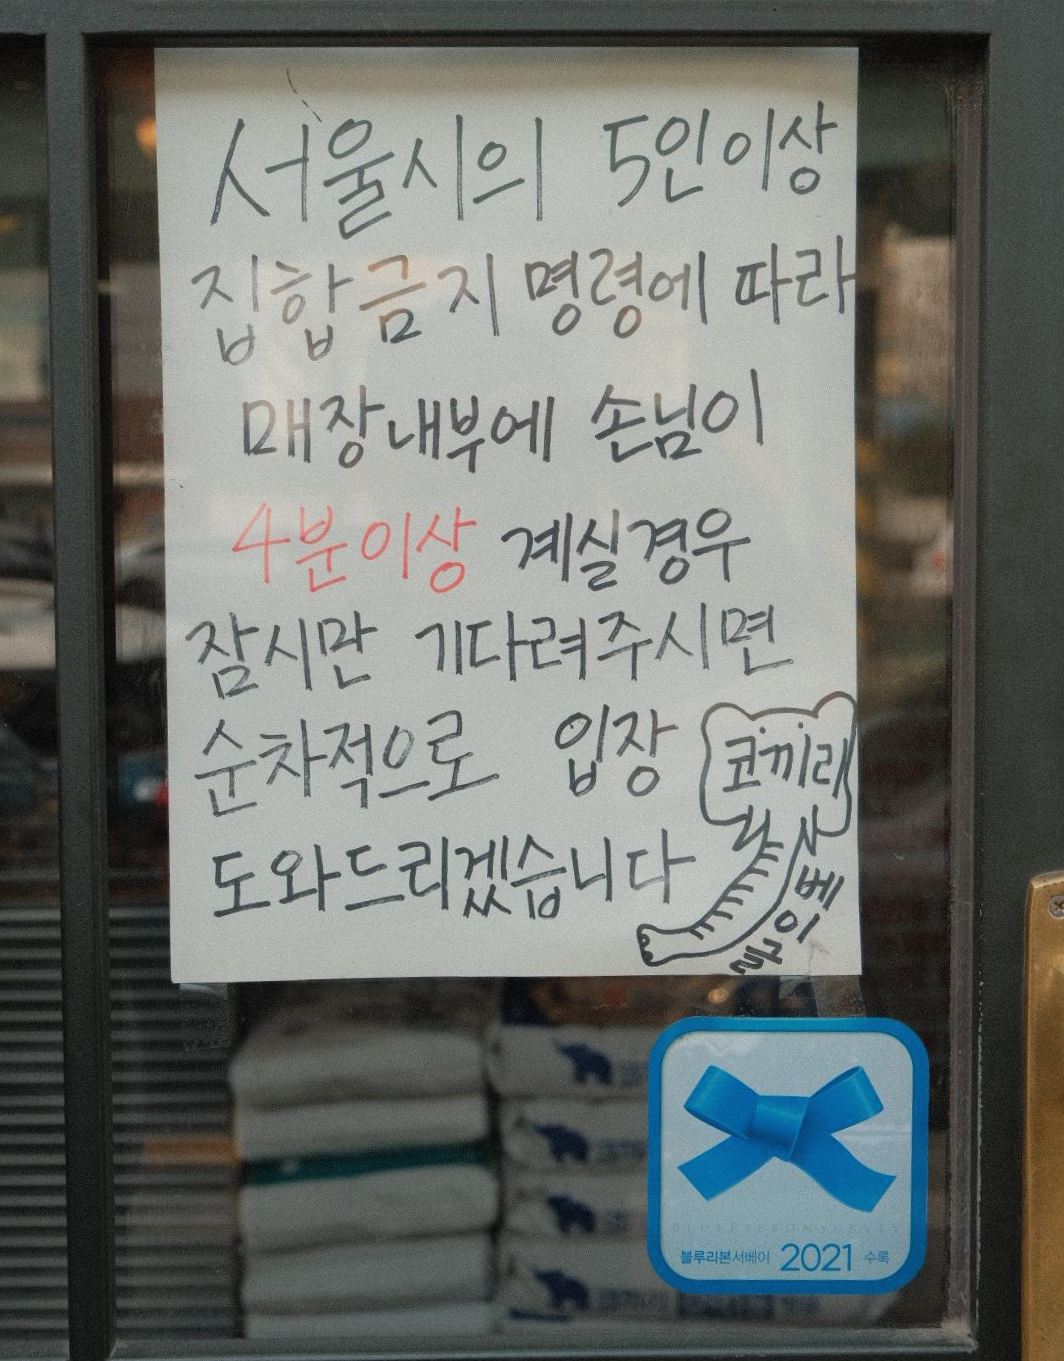 서울시의 5인이상
집합금지 명령에 따라
매장내부에 손님이
4분이상 계실경우
잠시만 기다려주시면
순차적으로 입장
도와드리겠습니다
코끼리
베이글
블루리본서베이 2021 수록